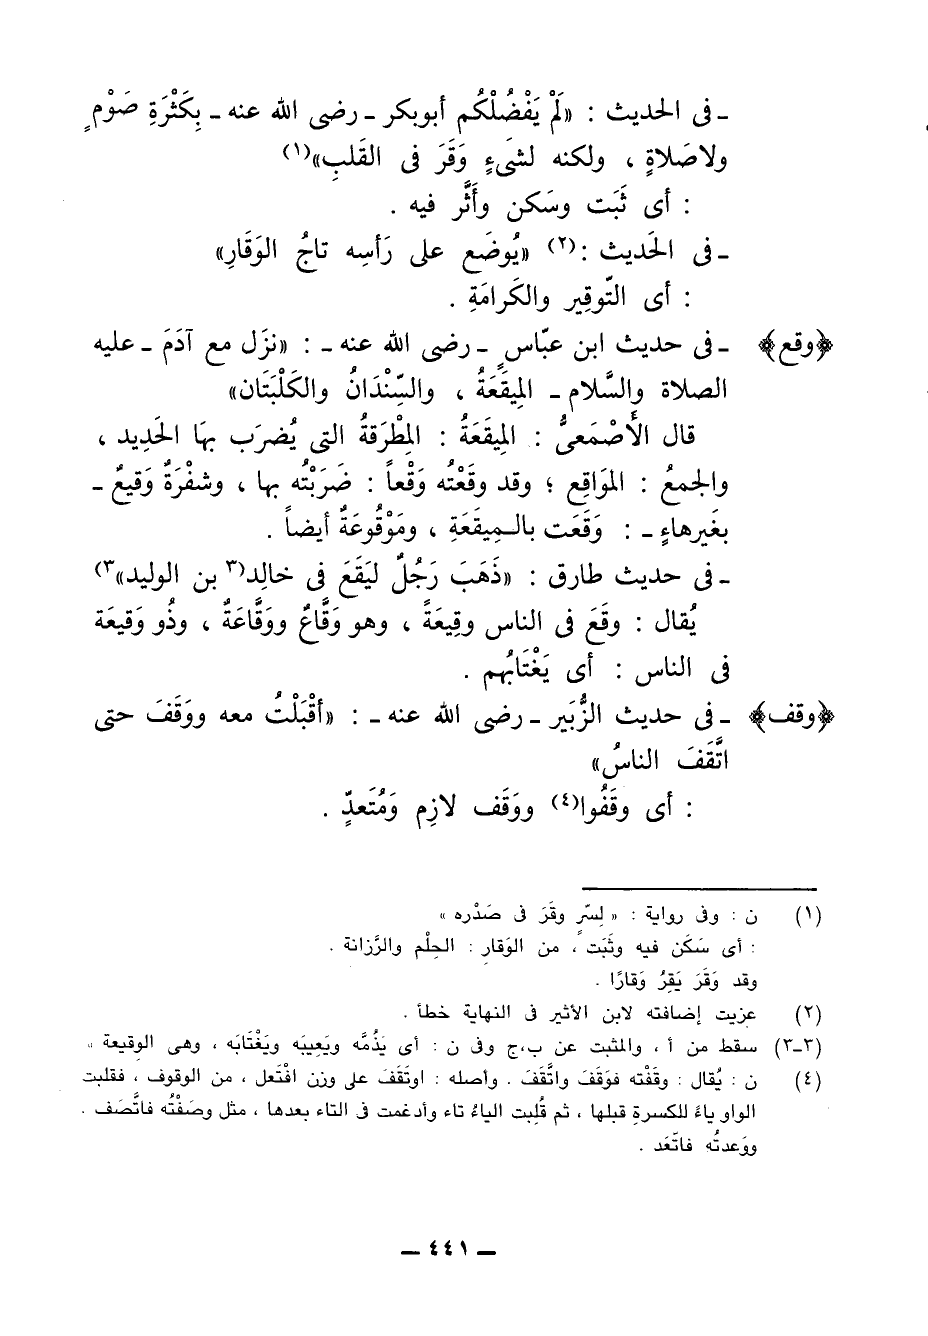 ـ فى الحديث : «لَمْ يَفْضُلْكُم أبوبكر ـ رضى الله عنه ـ بِكَثْرَةِ صَوْمٍ
ولاصَلاةٍ ، ولكنه لشَىءٍ وَقَرَ فى القَلبِ»(١)
: أى ثَبَت وسَكن وأَثَّر فيه .
ـ فى الحَديث :(٢) «يُوضَع على رَأسِه تاجُ الوَقَارِ»
: أى التّوقِير والكَرامَةِ .
﴿وقع﴾ ـ فى حديث ابن عبّاسٍ ـ رضى الله عنه ـ : «نَزَل مع آدَمَ ـ عليه
الصلاة والسَّلام ـ المِيقَعَةُ ، والسِّنْدَانُ والكَلْبَتَان»
قال الأَصْمَعىُّ : المِيقَعَةُ : المِطْرَقةُ التى يُضرَب بهَا الحَدِيد ،
والجمعُ : المَوَاقِع ؛ وقد وقَعْتُه وَقْعاً : ضَرَبْتُه بها ، وشفْرَةٌ وَقيعٌ ـ
بغَيرهاءٍ ـ : وَقَعَت بالـمِيقَعَةِ ، ومَوْقُوعَةٌ أيضاً .
ـ فى حديث طارق : «ذَهَبَ رَجُلٌ ليَقَعَ فى خالِد(٣ بن الوليد»٣)
يُقال : وقَعَ فى الناس وقِيعَةً ، وهو وَقَّاعٌ ووَقَّاعَةٌ ، وذُو وَقيعَة
فى الناس : أى يَغْتَابُهم .
﴿وقف﴾ ـ فى حديث الزُّبَير ـ رضى الله عنه ـ : «أقْبَلْتُ معه ووَقَفَ حتى
اتَّقَفَ الناسُ»
: أى وقَفُوا(٤) ووَقَف لازِم وَمُتَعدٍّ .
(١) ن : وفى رواية : « لِسرٍّ وقَرَ فى صَدْره »
: أى سَكَن فيه وثَبَت ، من الوَقار : الحِلْم والرَّزانة .
وقد وَقَرَ يَقِرُ وَقارًا .
(٢) عزيت إضافته لابن الأثير فى النهاية خطأ .
(٣ـ٣) سقط من أ ، والمثبت عن ب،ج وفى ن : أى يَذُمَّه ويَعِيبَه ويَغْتَابَه ، وهى الوقيعة »
(٤) ن : يُقال : وقَفْته فوَقَفَ واتَّقَفَ . وأصله : اوتَقَفَ على وزن افْتَعل ، من الوقوف ، فقلبت
الواو ياءً للكسرةِ قبلها ، ثم قُلِبت الياءُ تاء وأدغمت فى التاء بعدها ، مثل وصَفْتُه فاتَّصَف .
ووَعدتُه فاتّعَد .
ـ ٤٤١ ـ